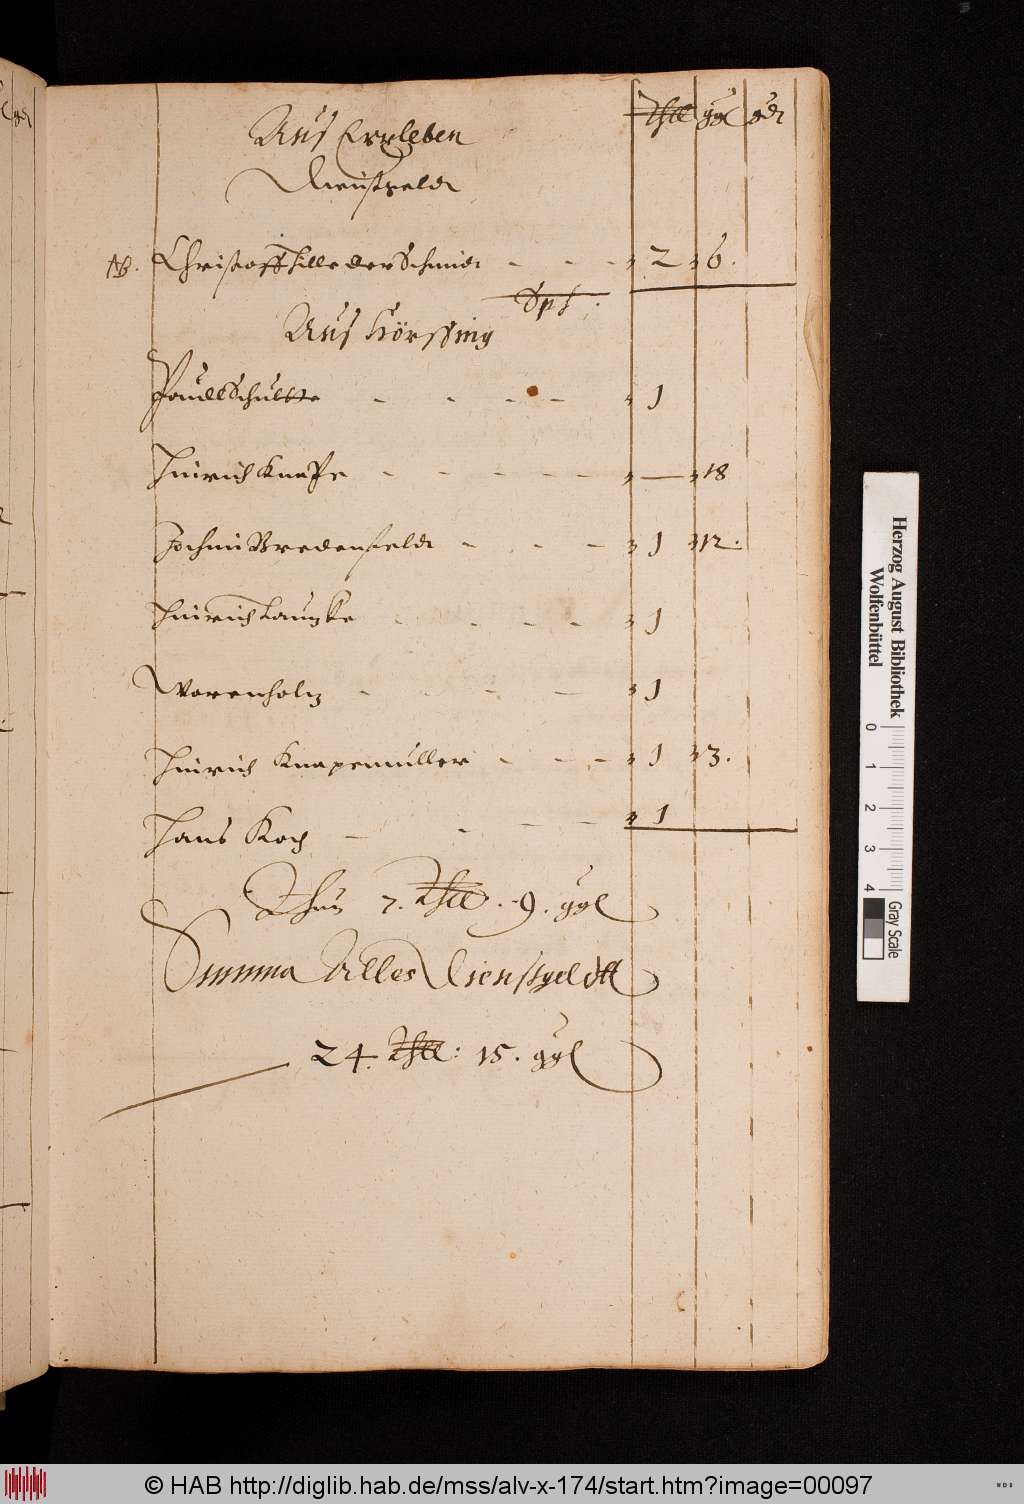 Thlr ggl gd
Aus Erxleben
Dienstgeldt
NB. Christoff Hille der Schmidt - - - 2 6.
Aus Hörssing
Paull Schultte - - - - 1
Hinrich Knape - - - - - — 18
Jochim Bredenfeldt - - - 1 12.
Hinrich - - - - 1
Warenholtz - - - - 1
Hinrich Knapenmüller - - - - 1 3.
Hans Koch - - - - 1
Thun 7. Thlr. 9. ggl
Summa Alles Dienstgeldtt
24. Thlr: 15. ggl
Herzog August Bibliothek
Wolfenbüttel
0 1 2 3 4
Gray Scale
© HAB http://diglib.hab.de/mss/alv-x-174/start.htm?image=00097